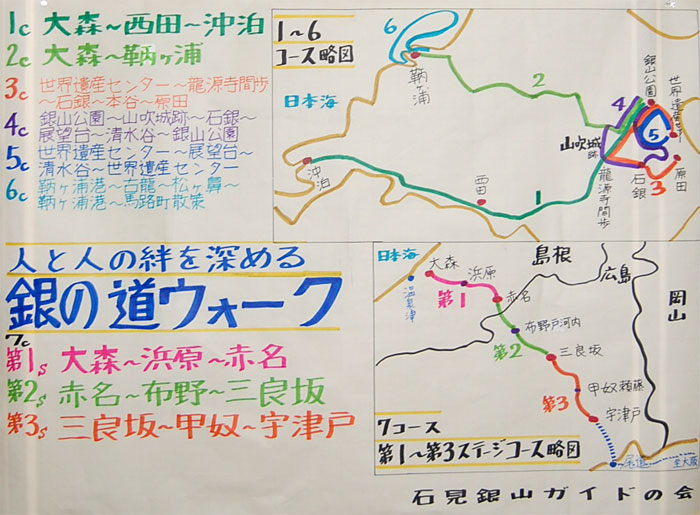 1c 大森~西田~沖泊
2c 大森~鞆ヶ浦
3c 世界遺産センター~龍源寺間歩
~石銀~本谷~原田
4c 銀山公園~山吹城跡~石銀~
展望台~清水谷~銀山公園
5c 世界遺産センター~展望台~
清水谷~世界遺産センター
6c 鞆ヶ浦港~古龍~松ヶ鼻~
鞆ヶ浦港~馬路町散策
1~6
コース略図
6
鞆ヶ浦
日本海
2
銀山公園
世界遺産セ
4
5
山吹城跡
沖泊
西田
1
龍源寺間歩
石銀
3
原田
人と人の絆を深める
銀の道ウォーク
7c
第1s 大森~浜原~赤名
第2s 赤名~布野~三良坂
第3s 三良坂~甲奴~宇津戸
日本海
大森
浜原
島根
広島
岡山
温泉津
第1
赤名
布野戸河内
第2
三良坂
甲奴頼藤
第3
宇津戸
7コース
第1~第3ステージコース略図
尾道
至大阪
石見銀山ガイドの会